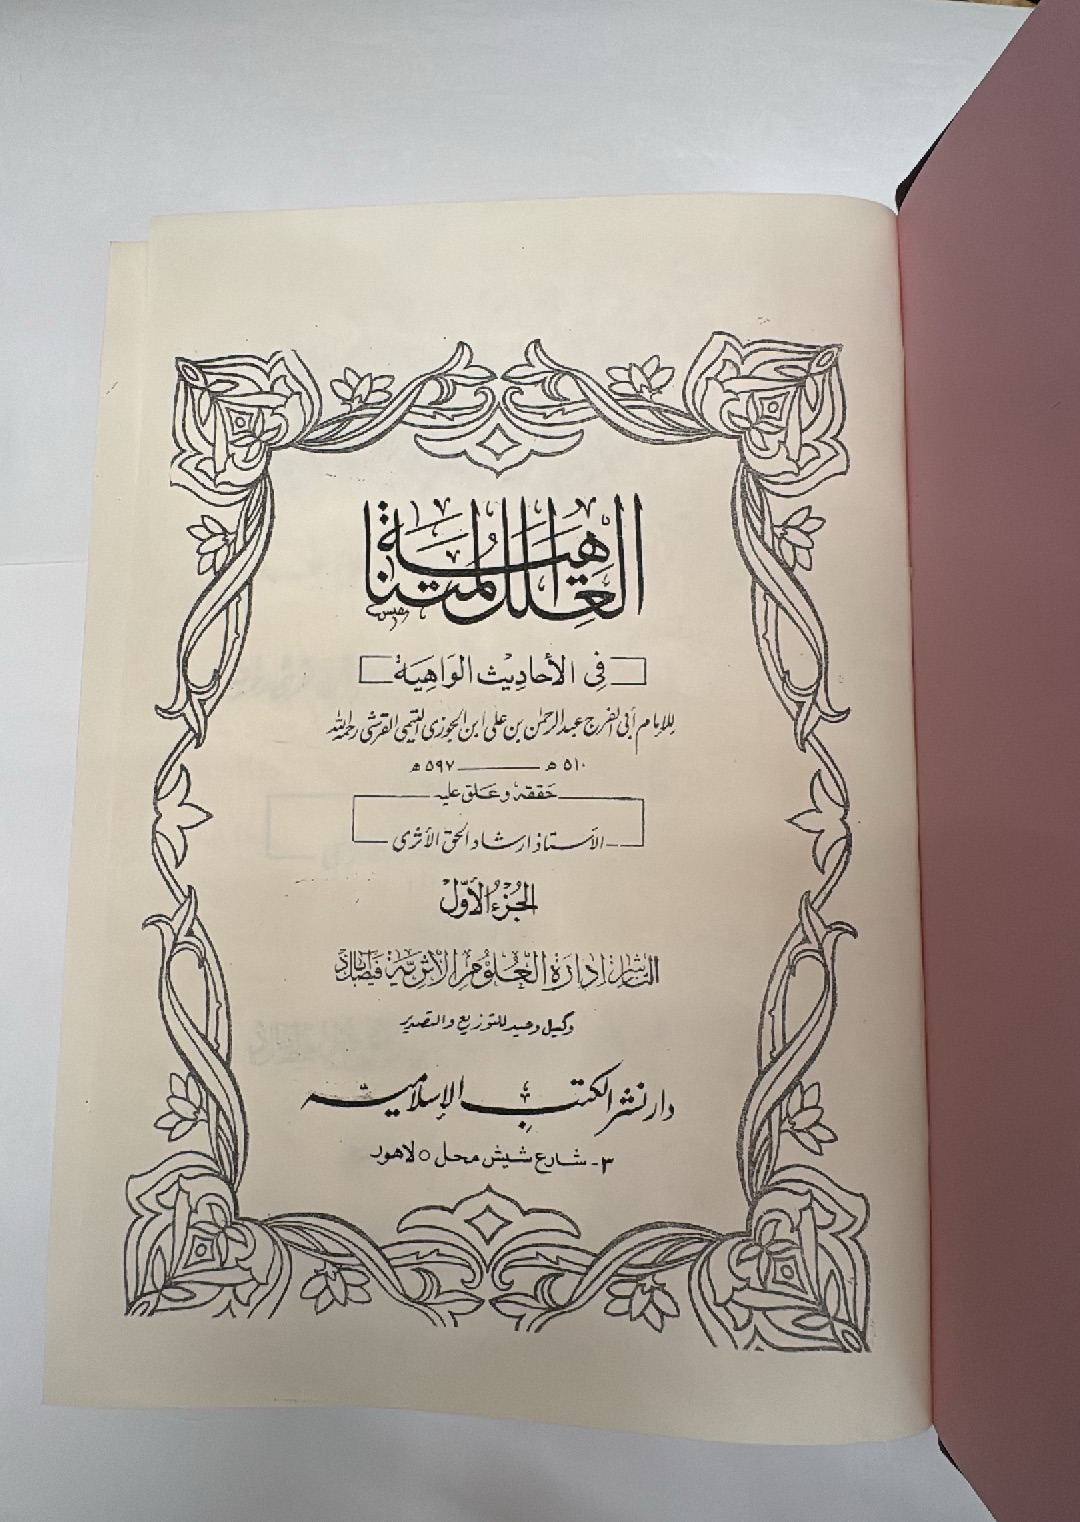 العلل المتناهية
في الأحاديث الواهية
للإمام أبي الفرج عبد الرحمٰن بن علي ابن الجوزى التيمي القرشي رحمه الله
٥١٠ هـ ــــــــ ٥٩٧ هـ
حققه وعلق عليه
الأستاذ ارشاد الحق الأثرى
الجزء الأوّل
الناشر ادارة العلوم الأثرية فيصل آباد
وكيل وحيد للتوزيع والتصدير
دار نشر الكتب الإسلامية
٣- شارع شيش محل ○ لاهور